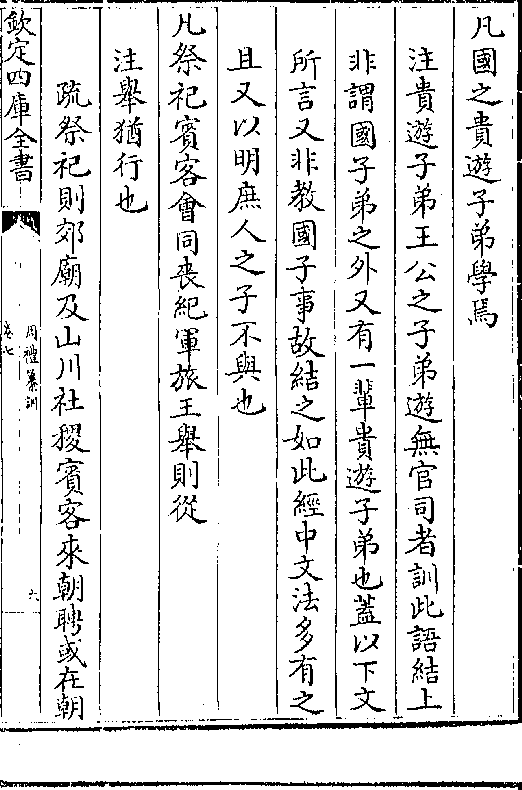 凡國之貴遊子弟學焉
注貴遊子弟王公之子弟遊無官司者訓此語結上
非謂國子弟之外又有一輩貴遊子弟也蓋以下文
所言又非教國子事故結之如此經中文法多有之
且又以明庶人之子不與也
凡祭祀賓客會同喪紀軍旅王舉則從
注舉猶行也
疏祭祀則郊廟及山川社稷賓客來朝聘或在朝
欽定四庫全書
周禮纂訓
卷七
六